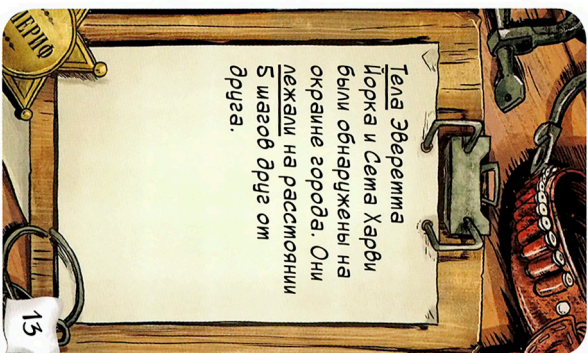 Тела Эверетта
Йорка и Сета Харви
были обнаружены на
окраине города. Они
лежали на расстоянии
5 шагов друг от
друга.
ШЕРИФ
13